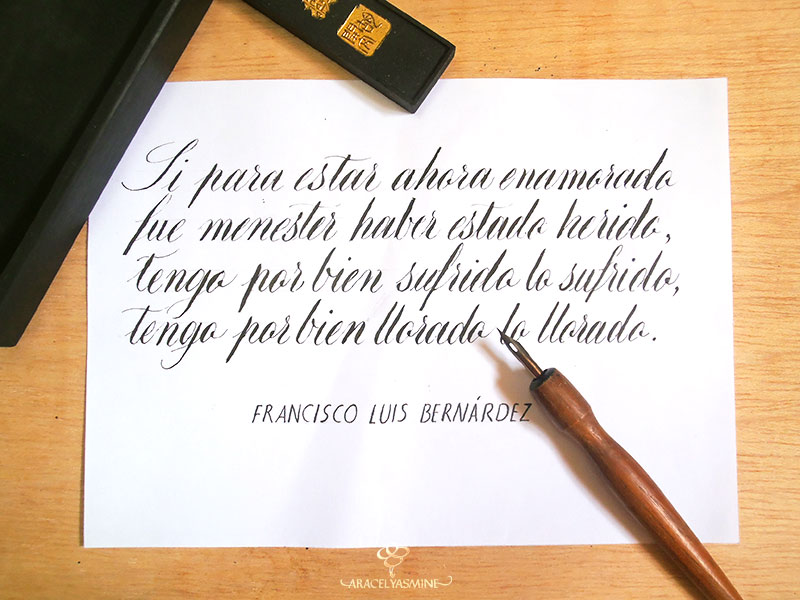 Si para estar ahora enamorado
fue menester haber estado herido,
tengo por bien sufrido lo sufrido,
tengo por bien llorado lo llorado.
FRANCISCO LUIS BERNÁRDEZ
ARACELYASMINE